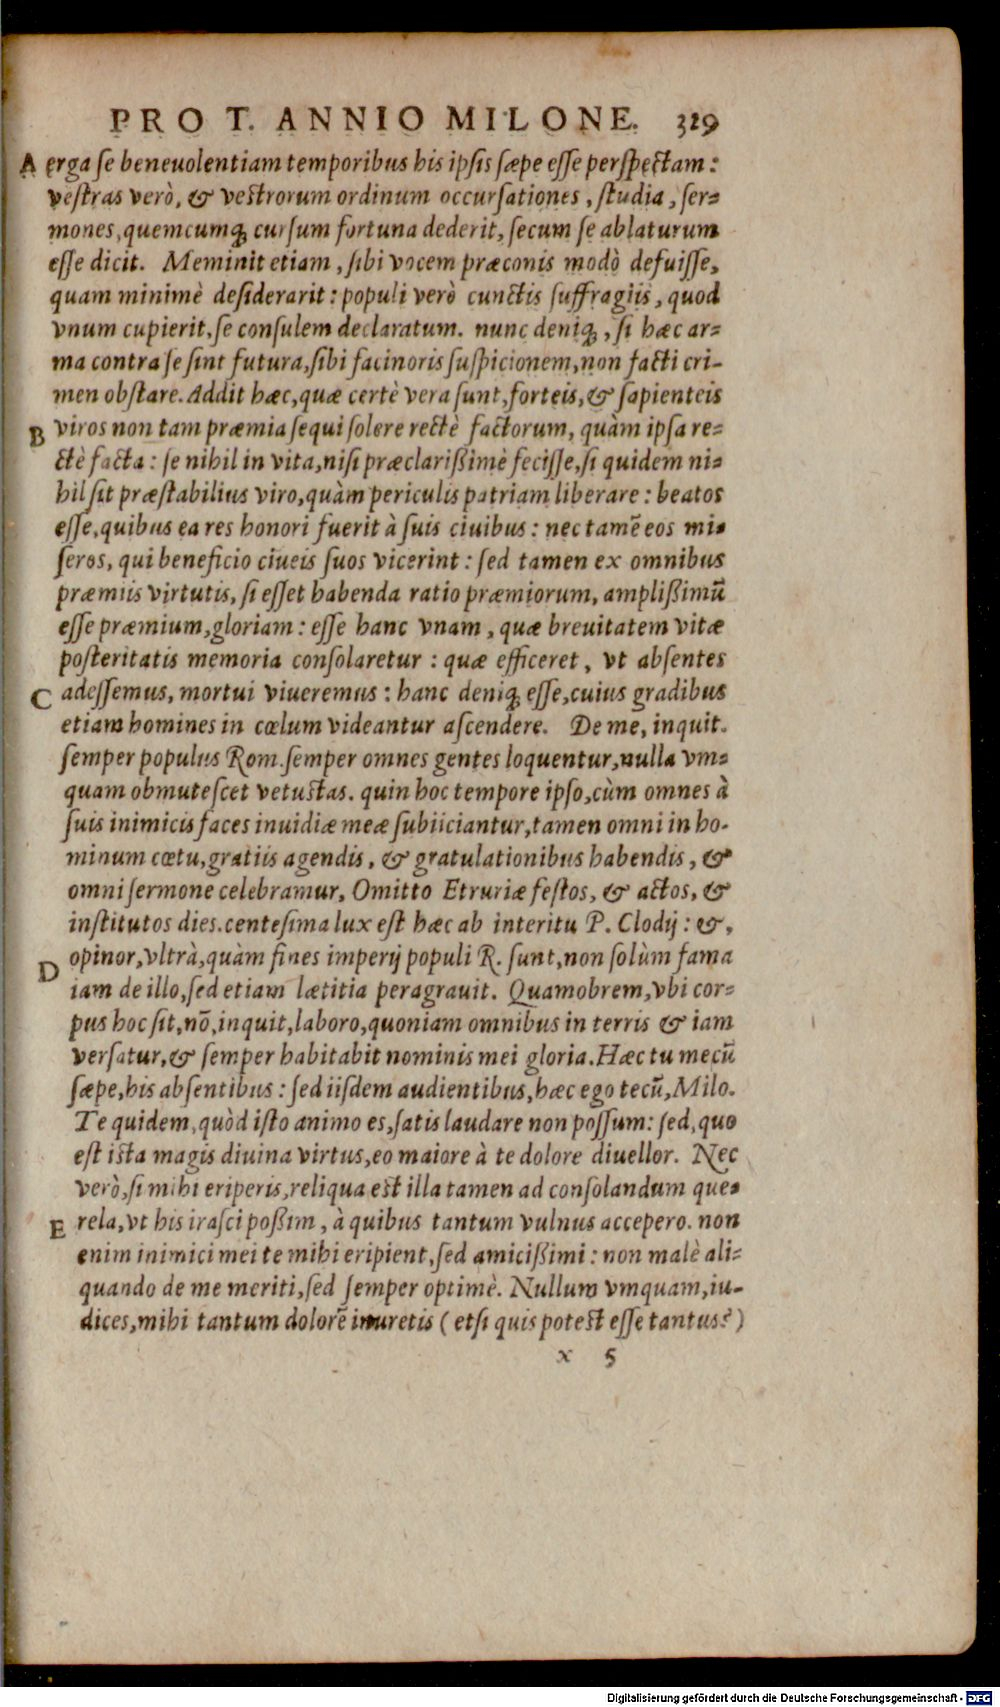 PRO T. ANNIO MILONE. 329
A erga se beneuolentiam temporibus his ipsis sæpe esse perspectam:
vestras verò, & vestrorum ordinum occursationes, studia, ser-
mones, quemcumq; cursum fortuna dederit, secum se ablaturum
esse dicit. Meminit etiam, sibi vocem præconis modò defuisse,
quam minimè desiderarit: populi verò cunctis suffragiis, quod
vnum cupierit, se consulem declaratum. nunc deniq;, si hæc ar-
ma contra se sint futura, sibi facinoris suspicionem, non facti cri-
men obstare. Addit hæc, quæ certè vera sunt, forteis, & sapienteis
B viros non tam præmia sequi solere rectè factorum, quàm ipsa re-
ctè facta: se nihil in vita, nisi præclarißimè fecisse, si quidem ni-
hil sit præstabilius viro, quàm periculis patriam liberare: beatos
esse, quibus ea res honori fuerit à suis ciuibus: nec tamē eos mi-
seros, qui beneficio ciueis suos vicerint: sed tamen ex omnibus
præmiis virtutis, si esset habenda ratio præmiorum, amplißimū
esse præmium, gloriam: esse hanc vnam, quæ breuitatem vitæ
posteritatis memoria consolaretur: quæ efficeret, vt absentes
C adessemus, mortui viueremus: hanc deniq; esse, cuius gradibus
etiam homines in cœlum videantur ascendere. De me, inquit.
semper populus Rom. semper omnes gentes loquentur, nulla vm-
quam obmutescet vetustas. quin hoc tempore ipso, cùm omnes à
suis inimicis faces inuidiæ meæ subiiciantur, tamen omni in ho-
minum cœtu, gratiis agendis, & gratulationibus habendis, &
omni sermone celebramur, Omitto Etruriæ festos, & actos, &
institutos dies. centesima lux est hæc ab interitu P. Clodij: &,
D opinor, vltrà, quàm fines imperij populi R. sunt, non solùm fama
iam de illo, sed etiam lætitia peragrauit. Quamobrem, vbi cor-
pus hoc sit, nō, inquit, laboro, quoniam omnibus in terris & iam
versatur, & semper habitabit nominis mei gloria. Hæc tu mecū
sæpe, his absentibus: sed iisdem audientibus, hæc ego tecū, Milo.
Te quidem, quòd isto animo es, satis laudare non possum: sed, quo
est ista magis diuina virtus, eo maiore à te dolore diuellor. Nec
verò, si mihi eriperis, reliqua est illa tamen ad consolandum que-
E rela, vt his irasci poßim, à quibus tantum vulnus accepero. non
enim inimici mei te mihi eripient, sed amicißimi: non malè ali-
quando de me meriti, sed semper optimè. Nullum vmquam, iu-
dices, mihi tantum dolorē inuretis (etsi quis potest esse tantus?)
x 5
Digitalisierung gefördert durch die Deutsche Forschungsgemeinschaft - DFG